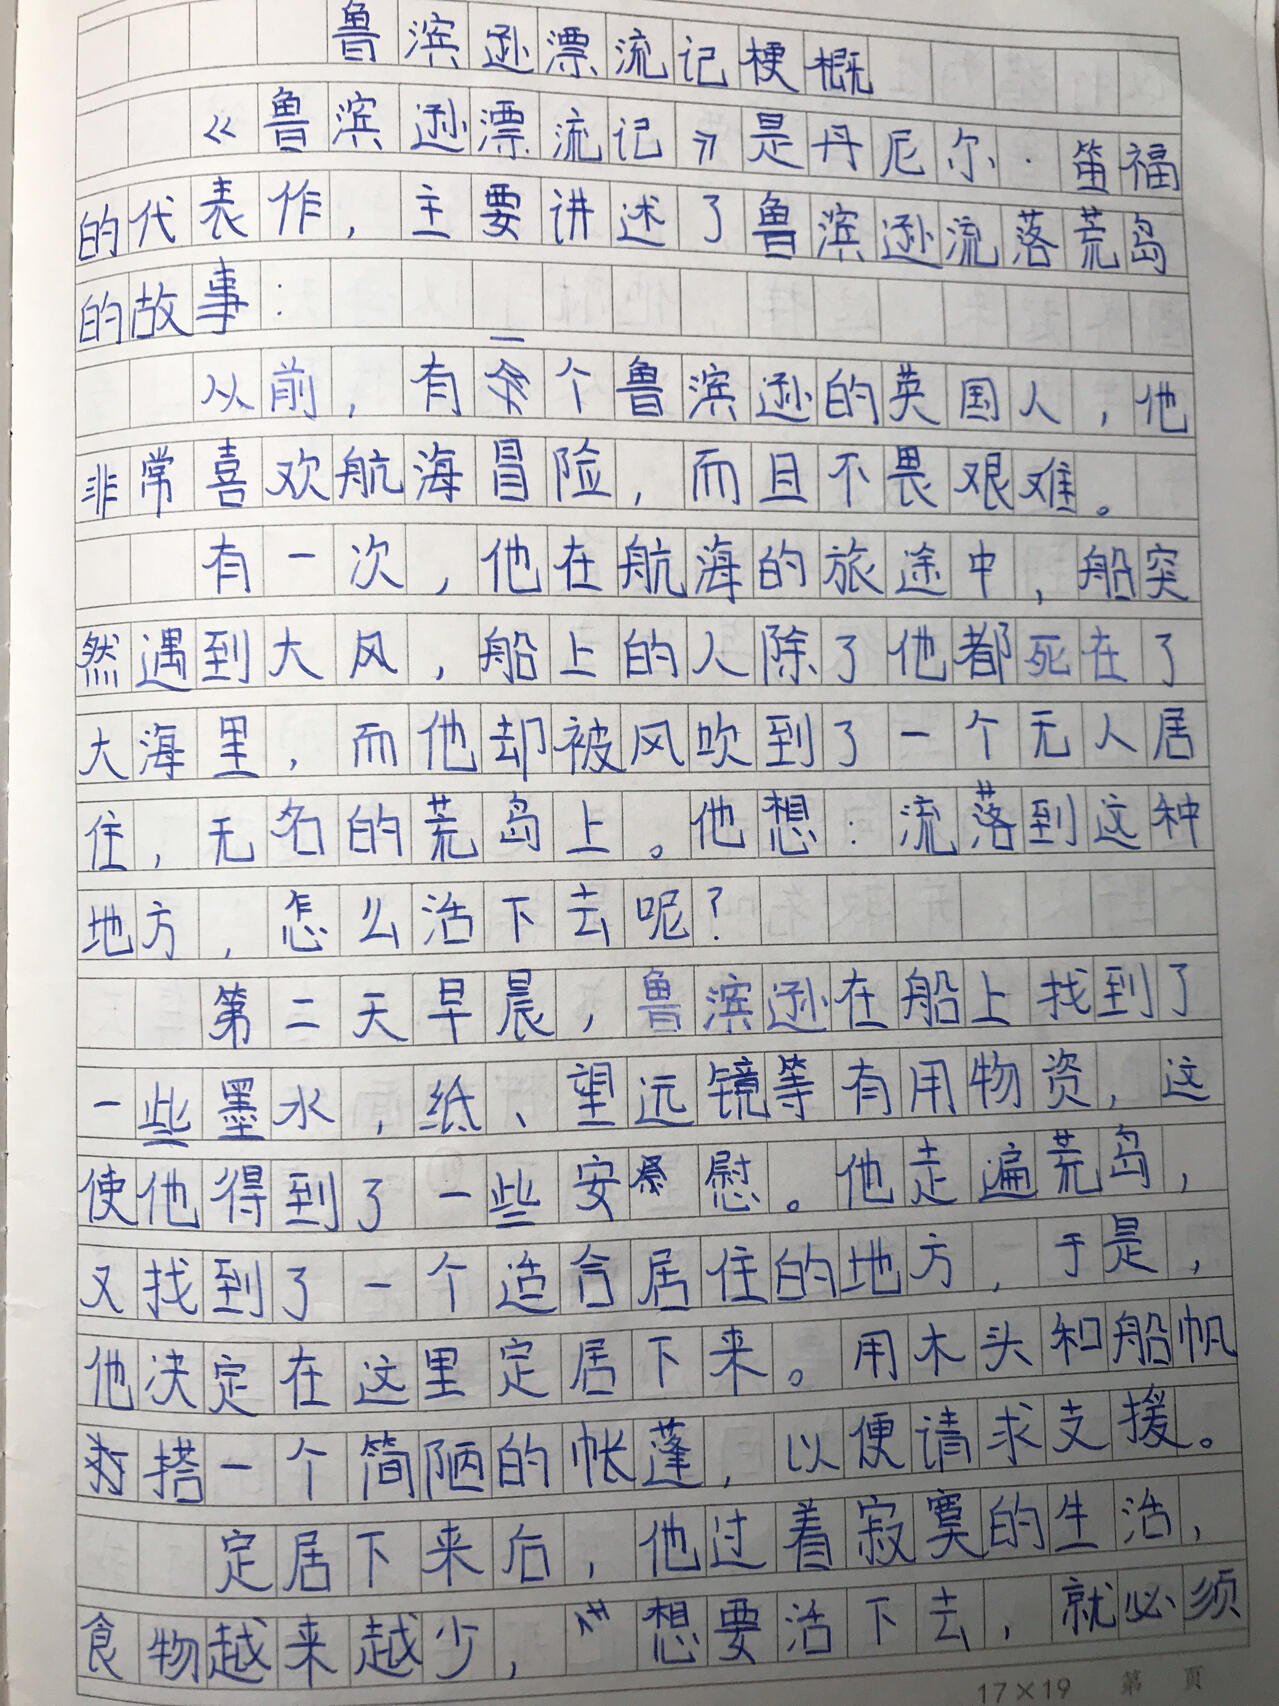 鲁滨逊漂流记梗概
《鲁滨逊漂流记》是丹尼尔·笛福
的代表作，主要讲述了鲁滨逊流落荒岛
的故事：
从前，有一个鲁滨逊的英国人，他
非常喜欢航海冒险，而且不畏艰难。
有一次，他在航海的旅途中，船突
然遇到大风，船上的人除了他都死在了
大海里，而他却被风吹到了一个无人居
住，无名的荒岛上。他想：流落到这种
地方，怎么活下去呢？
第二天早晨，鲁滨逊在船上找到了
一些墨水，纸、望远镜等有用物资，这
使他得到了一些安慰。他走遍荒岛，
又找到了一个造合居住的地方，于是，
他决定在这里定居下来。用木头和船帆
搭一个简陋的帐蓬，以便请求支援。
定居下来后，他过着寂寞的生活，
食物越来越少，想要活下去，就必须
17×19 第 页